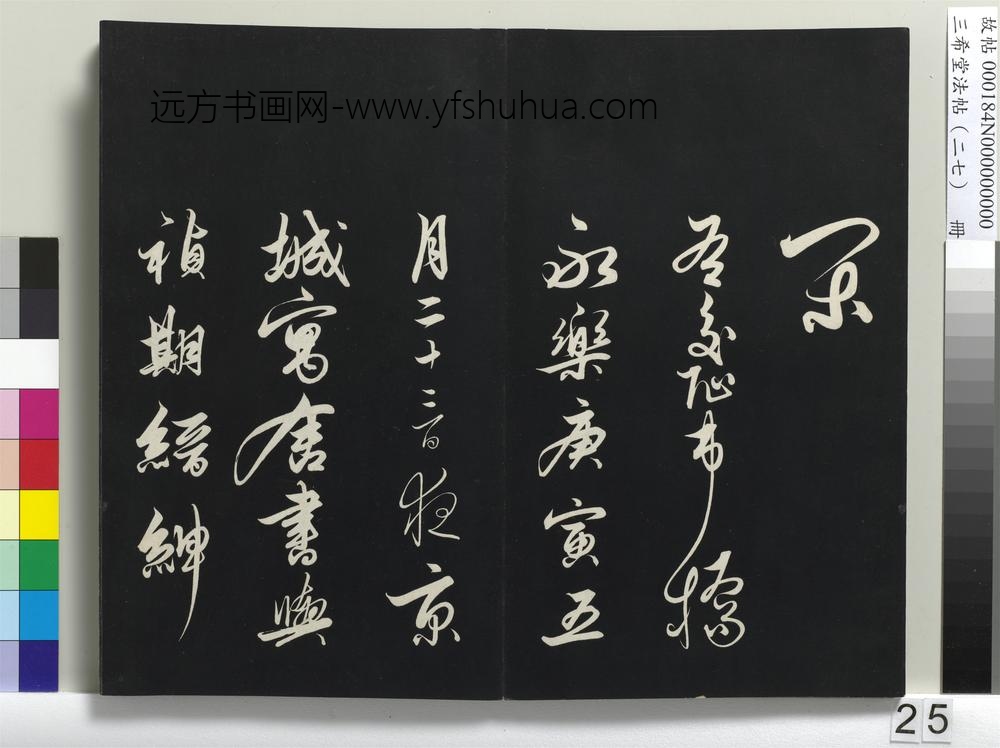 远方书画网-www.yfshuhua.com
故帖 000184N000000000
三希堂法帖(二七) 冊
閑
右交趾市橋
永樂庚寅五
月二十三日夜京
城寓舍書與
禎期縉紳
25